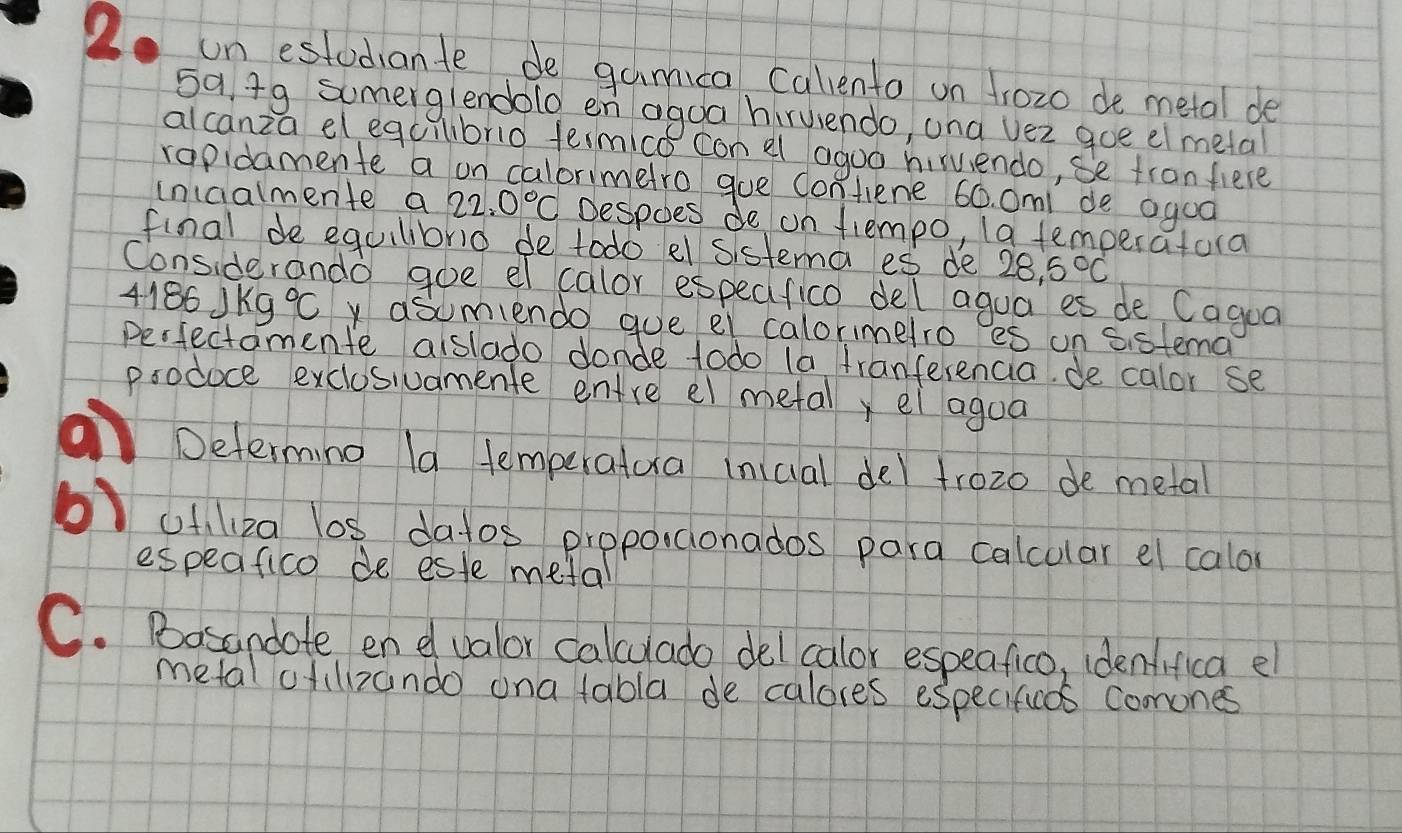 2. un estudiante de quimica calienta un trozo de metal de
59,7g sumergiendolo en agua hirviendo, una vez que el metal
alcanza el equilibrio termico con el agua hirviendo, se tranfiere
rapidamente a un calorimetro que contiene 60.0ml de agua
inicialmente a 22.0°C Despues de un tiempo, la temperatura
final de equilibrio de todo el sistema es de 28,5°C
Considerando que el calor especifico del agua es de Cagua
4186 JKg°C y asumiendo que el calorimetro es un sistema
perfectamente aislado donde todo la tranferencia. de calor se
produce exclusivamente entre el metal y el agua
a) Determina la temperatura inicial del trozo de metal
b) utiliza los datos proporcionados para calcular el calor
especifico de este metal
C. Basandote en el valor calculado del calor especifico, identifica el
metal utilizando una tabla de calores especificos comunes